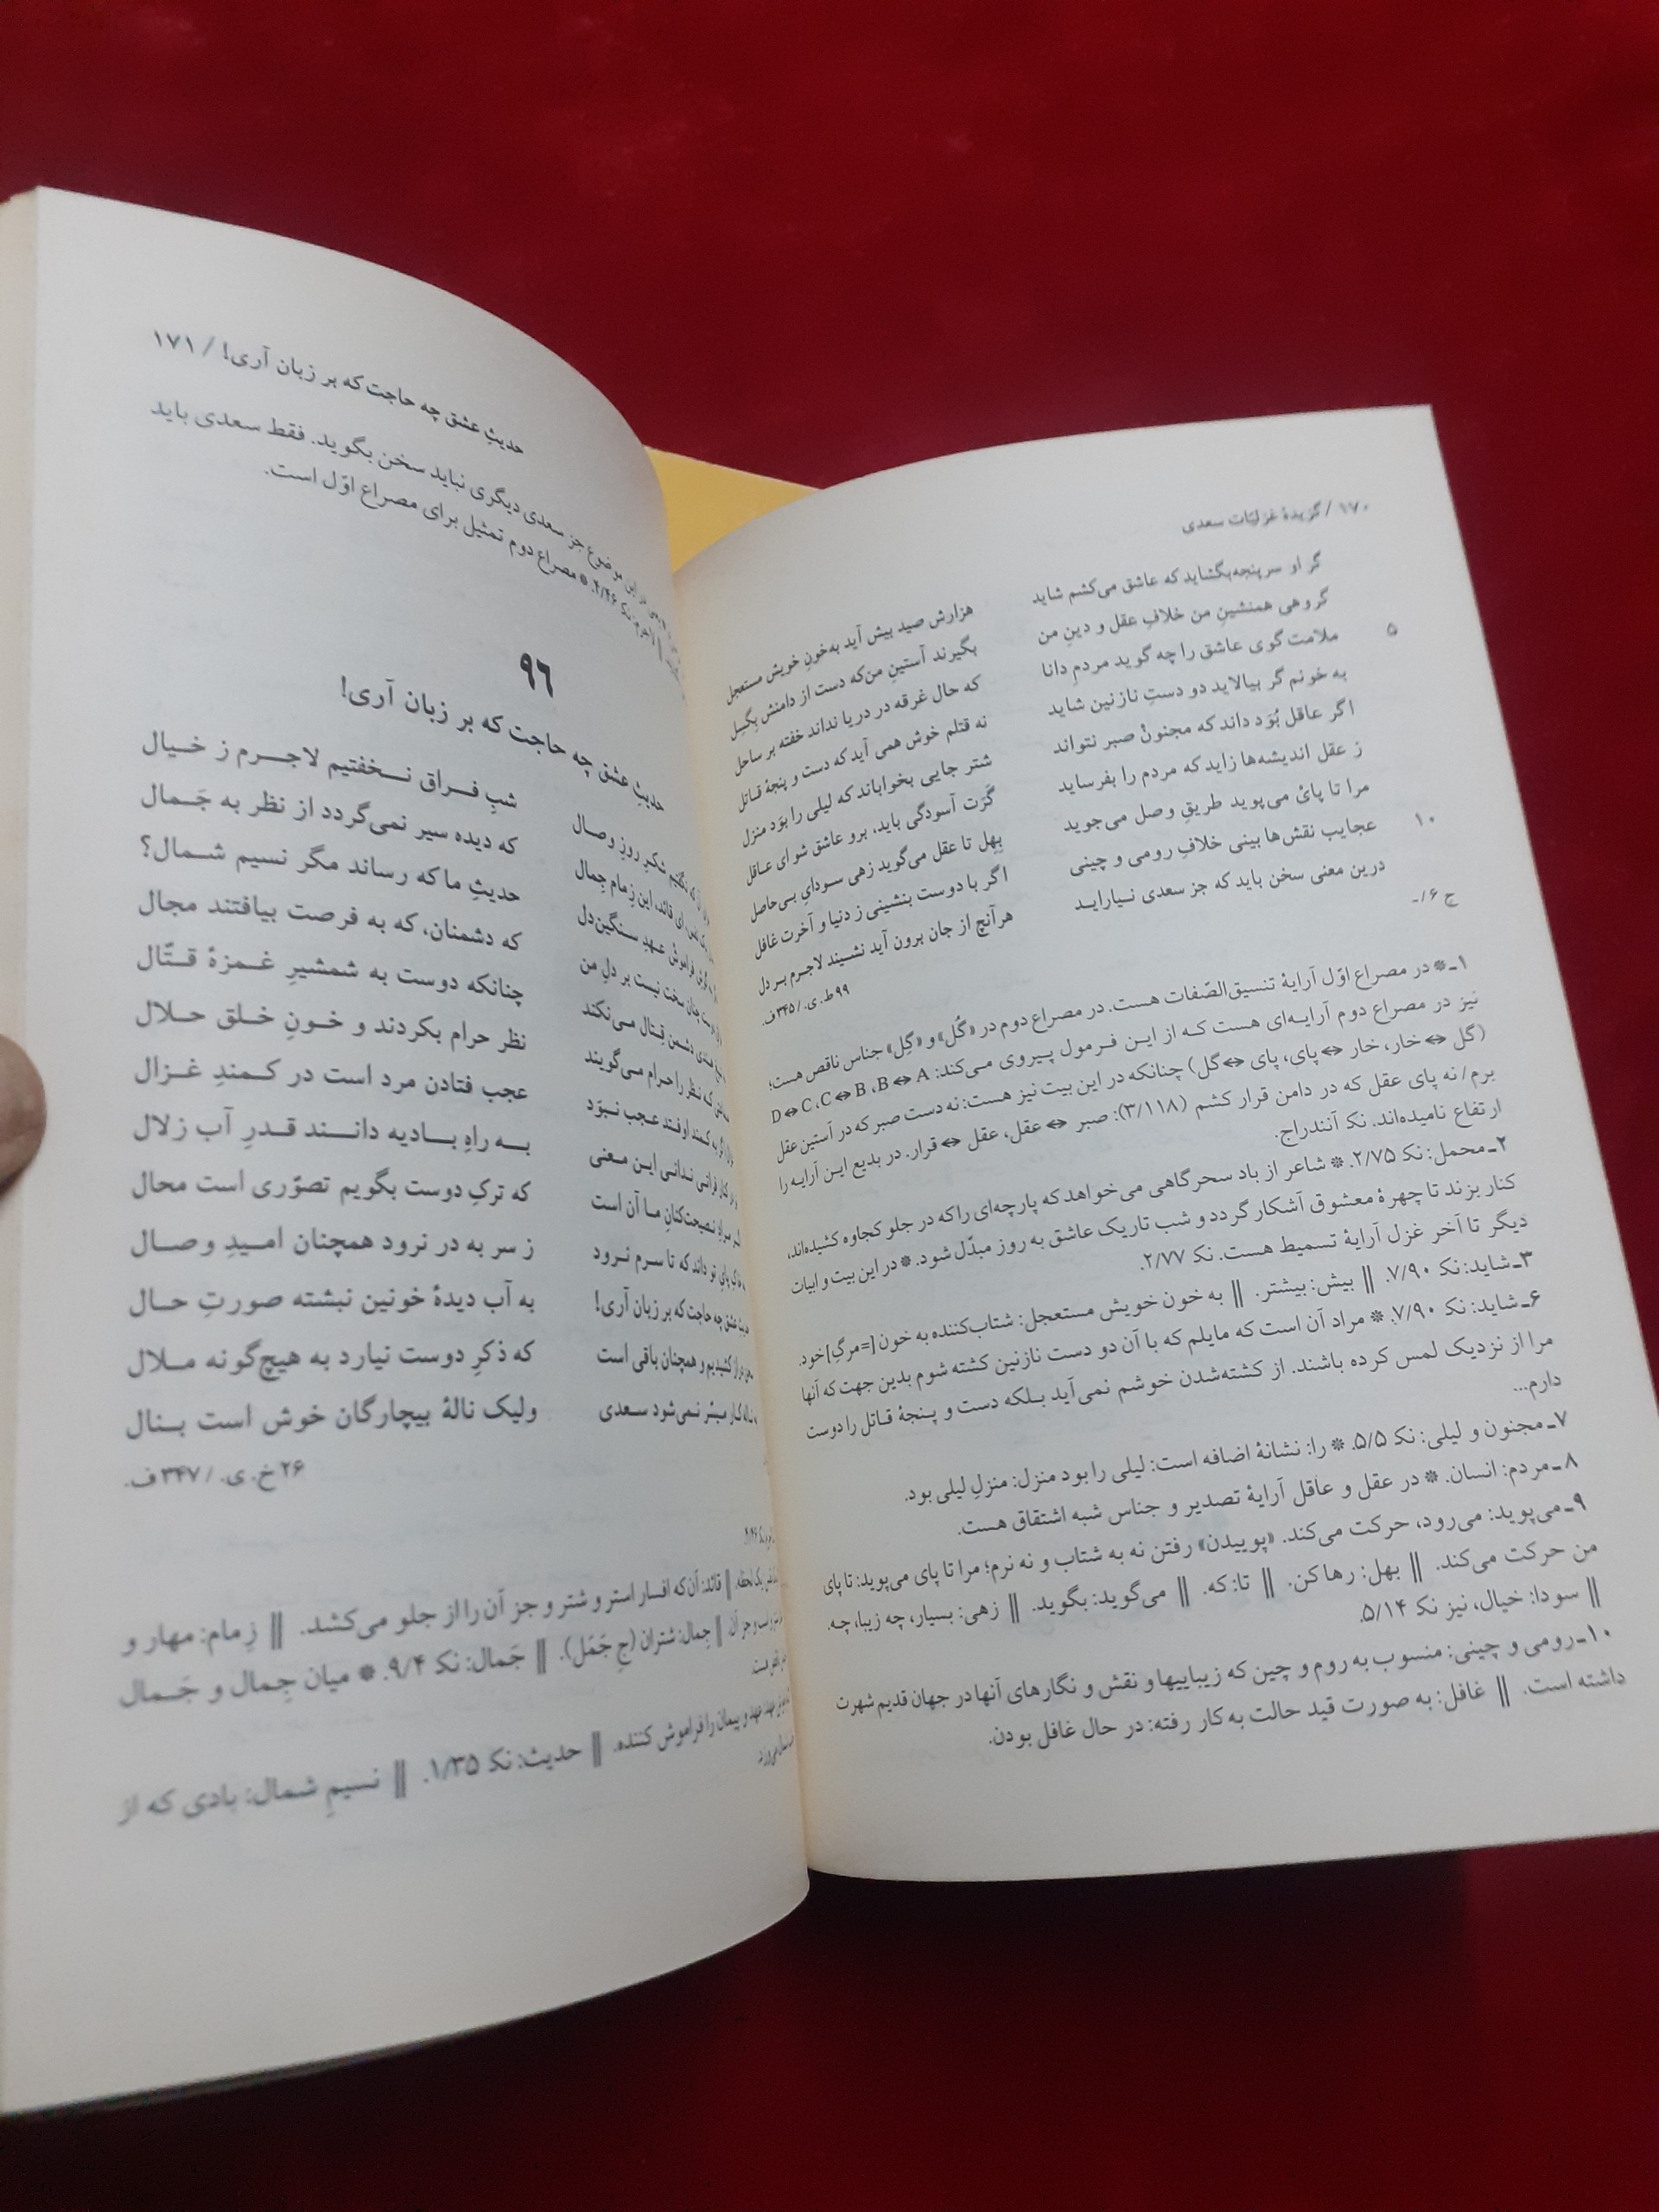 ۱۷۰ / گزیدهٔ غزلیّات سعدی
گر او سرپنجه بگشاید که عاشق می‌کشم شاید هزارش صید بیش آید به‌خونِ خویش مستعجل
گروهی همنشینِ من خلافِ عقل و دینِ من بگیرند آستینِ من‌که دست از دامنش بِگسِل
۵ ملامت‌گوی عاشق را چه گوید مردمِ دانا که حال غرقه در دریا نداند خفته بر ساحل
به خونم گر بیالاید دو دستِ نازنین شاید نه قتلم خوش همی آید که دست و پنجهٔ قاتل
اگر عاقل بُوَد داند که مجنونْ صبر نتواند شتر جایی بخواباند که لیلی را بوَد منزل
ز عقل اندیشه‌ها زاید که مردم را بفرساید گَرَت آسودگی باید، برو عاشق شو ای عاقل
مرا تا پایْ می‌پوید طریقِ وصل می‌جوید بِهِل تا عقل می‌گوید زهی سودایِ بی‌حاصل
۱۰ عجایب نقش‌ها بینی خلافِ رومی و چینی اگر با دوست بنشینی ز دنیا و آخرت غافل
درین معنی سخن باید که جز سعدی نیاراید هرآنچ از جان برون آید نشیند لاجرم بر دل
ج ۶/ـ ۹۹ ط. ی. / ۳۴۵ ف.
۱ـ * در مصراع اوّل آرایهٔ تنسیق‌الصّفات هست. در مصراع دوم در «گُل» و «گِل» جناس ناقص هست؛
نیز در مصراع دوم آرایه‌ای هست که از این فرمول پیروی می‌کند: D⇔C ،C⇔B ،B⇔A
(گل ⇔ خار، خار ⇔ پای، پای ⇔ گل) چنانکه در این بیت نیز هست: نه دست صبر که در آستین عقل
برم/ نه پای عقل که در دامن قرار کشم (۳/۱۱۸): صبر ⇔ عقل، عقل ⇔ قرار. در بدیع این آرایه را
ارتفاع نامیده‌اند. نک آنندراج.
۲ـ محمل: نک ۲/۷۵. * شاعر از باد سحرگاهی می‌خواهد که پارچه‌ای را که در جلو کجاوه کشیده‌اند،
کنار بزند تا چهرهٔ معشوق آشکار گردد و شب تاریک عاشق به روز مبدّل شود. * در این بیت و ابیات
دیگر تا آخر غزل آرایهٔ تسمیط هست. نک ۲/۷۷.
۳ـ شاید: نک ۷/۹۰. ‖ بیش: بیشتر. ‖ به خون خویش مستعجل: شتاب‌کننده به خون [=مرگِ] خود.
۶ـ شاید: نک ۷/۹۰. * مراد آن است که مایلم که با آن دو دست نازنین کشته شوم بدین جهت که آنها
مرا از نزدیک لمس کرده باشند. از کشته‌شدن خوشم نمی‌آید بلکه دست و پنجهٔ قاتل را دوست
دارم...
۷ـ مجنون و لیلی: نک ۵/۵. * را: نشانهٔ اضافه است: لیلی را بود منزل: منزلِ لیلی بود.
۸ـ مردم: انسان. * در عقل و عاقل آرایهٔ تصدیر و جناس شبه اشتقاق هست.
۹ـ می‌پوید: می‌رود، حرکت می‌کند. «پوییدن» رفتن نه به شتاب و نه نرم؛ مرا تا پای می‌پوید: تا پای
من حرکت می‌کند. ‖ بهل: رها کن. ‖ تا: که. ‖ می‌گوید: بگوید. ‖ زهی: بسیار، چه زیبا، چه.
‖ سودا: خیال، نیز نک ۵/۱۴.
۱۰ـ رومی و چینی: منسوب به روم و چین که زیباییها و نقش و نگارهای آنها در جهان قدیم شهرت
داشته است. ‖ غافل: به صورت قید حالت به کار رفته: در حال غافل بودن.
حدیثِ عشق چه حاجت که بر زبان آری! / ۱۷۱
این موضوع جز سعدی دیگری نباید سخن بگوید. فقط سعدی باید
لاجرم: نک ۲/۴۶. * مصراع دوم تمثیل برای مصراع اوّل است.
۹۶
حدیثِ عشق چه حاجت که بر زبان آری!
که نگفتیم شکرِ روزِ وصال شبِ فراق نخفتیم لاجرم ز خیال
ای قائد، این زِمامِ جِمال که دیده سیر نمی‌گردد از نظر به جَمال
فراموشْ عهدِ سنگین‌دل حدیثِ ما که رساند مگر نسیم شمال؟
چنان سخت نیست بر دلِ من که دشمنان، که به فرصت بیافتند مجال
دشمن قِتال می‌نکند چنانکه دوست به شمشیرِ غمزهٔ قتّال
که نظر را حرام می‌گویند نظر حرام بکردند و خونِ خلق حلال
به کمند اوفتد عجب نبوَد عجب فتادن مرد است در کمندِ غزال
فراتی ندانی این معنی به راهِ بادیه دانند قدرِ آب زلال
مرادِ نصیحت‌کنانِ ما آن است که ترکِ دوست بگویم تصوّری است محال
پایِ تو داند که تا سرم نرود ز سر به در نرود همچنان امیدِ وصال
حدیثِ عشق چه حاجت که بر زبان آری! به آب دیدهٔ خونین نبشته صورتِ حال
کشیدیم و همچنان باقی است که ذکرِ دوست نیارد به هیچ‌گونه ملال
کار میسّر نمی‌شود سعدی ولیک نالهٔ بیچارگان خوش است بنال
۲۶ خ. ی. / ۳۴۷ ف.
یک لحظه. ‖ قائد: آن‌که افسار استر و شتر و جز آن را از جلو می‌کشد. ‖ زِمام: مهار و
و جز آن. ‖ جِمال: شتران (جِ جَمَل). ‖ جَمال: نک ۹/۴. * میان جِمال و جَمال
است.
عهد و پیمان را فراموش کننده. ‖ حدیث: نک ۱/۳۵. ‖ نسیمِ شمال: بادی که از